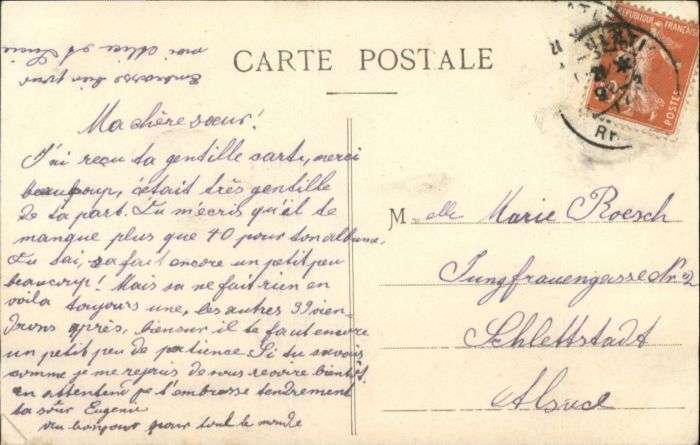 CARTE POSTALE
RÉPUBLIQUE FRANÇAISE
POSTES
Embrasse bien pour
moi Alice et Lucie
Ma chère sœur!
J'ai reçu ta gentille carte, merci
beaucoup, c'était très gentille
de ta part. Tu m'écris qu'il te
manque plus que 40 pour ton albume.
Tu sai, sa fait encore un petit peu
beaucoup! Mais sa ne fait rien en
voila toujours une, les autres 39 vien-
drons après, biensur il te faut encore
un petit peu de patience. Si tu savais
comme je me rejouis de vous revoire bientôt.
en attendent je t'embrasse tendrement
ta sœur Eugenie
un bonjour pour tout le monde
Melle Marie Roesch
Jungfrauengasse Nr. 2
Schlettstadt
Alsace